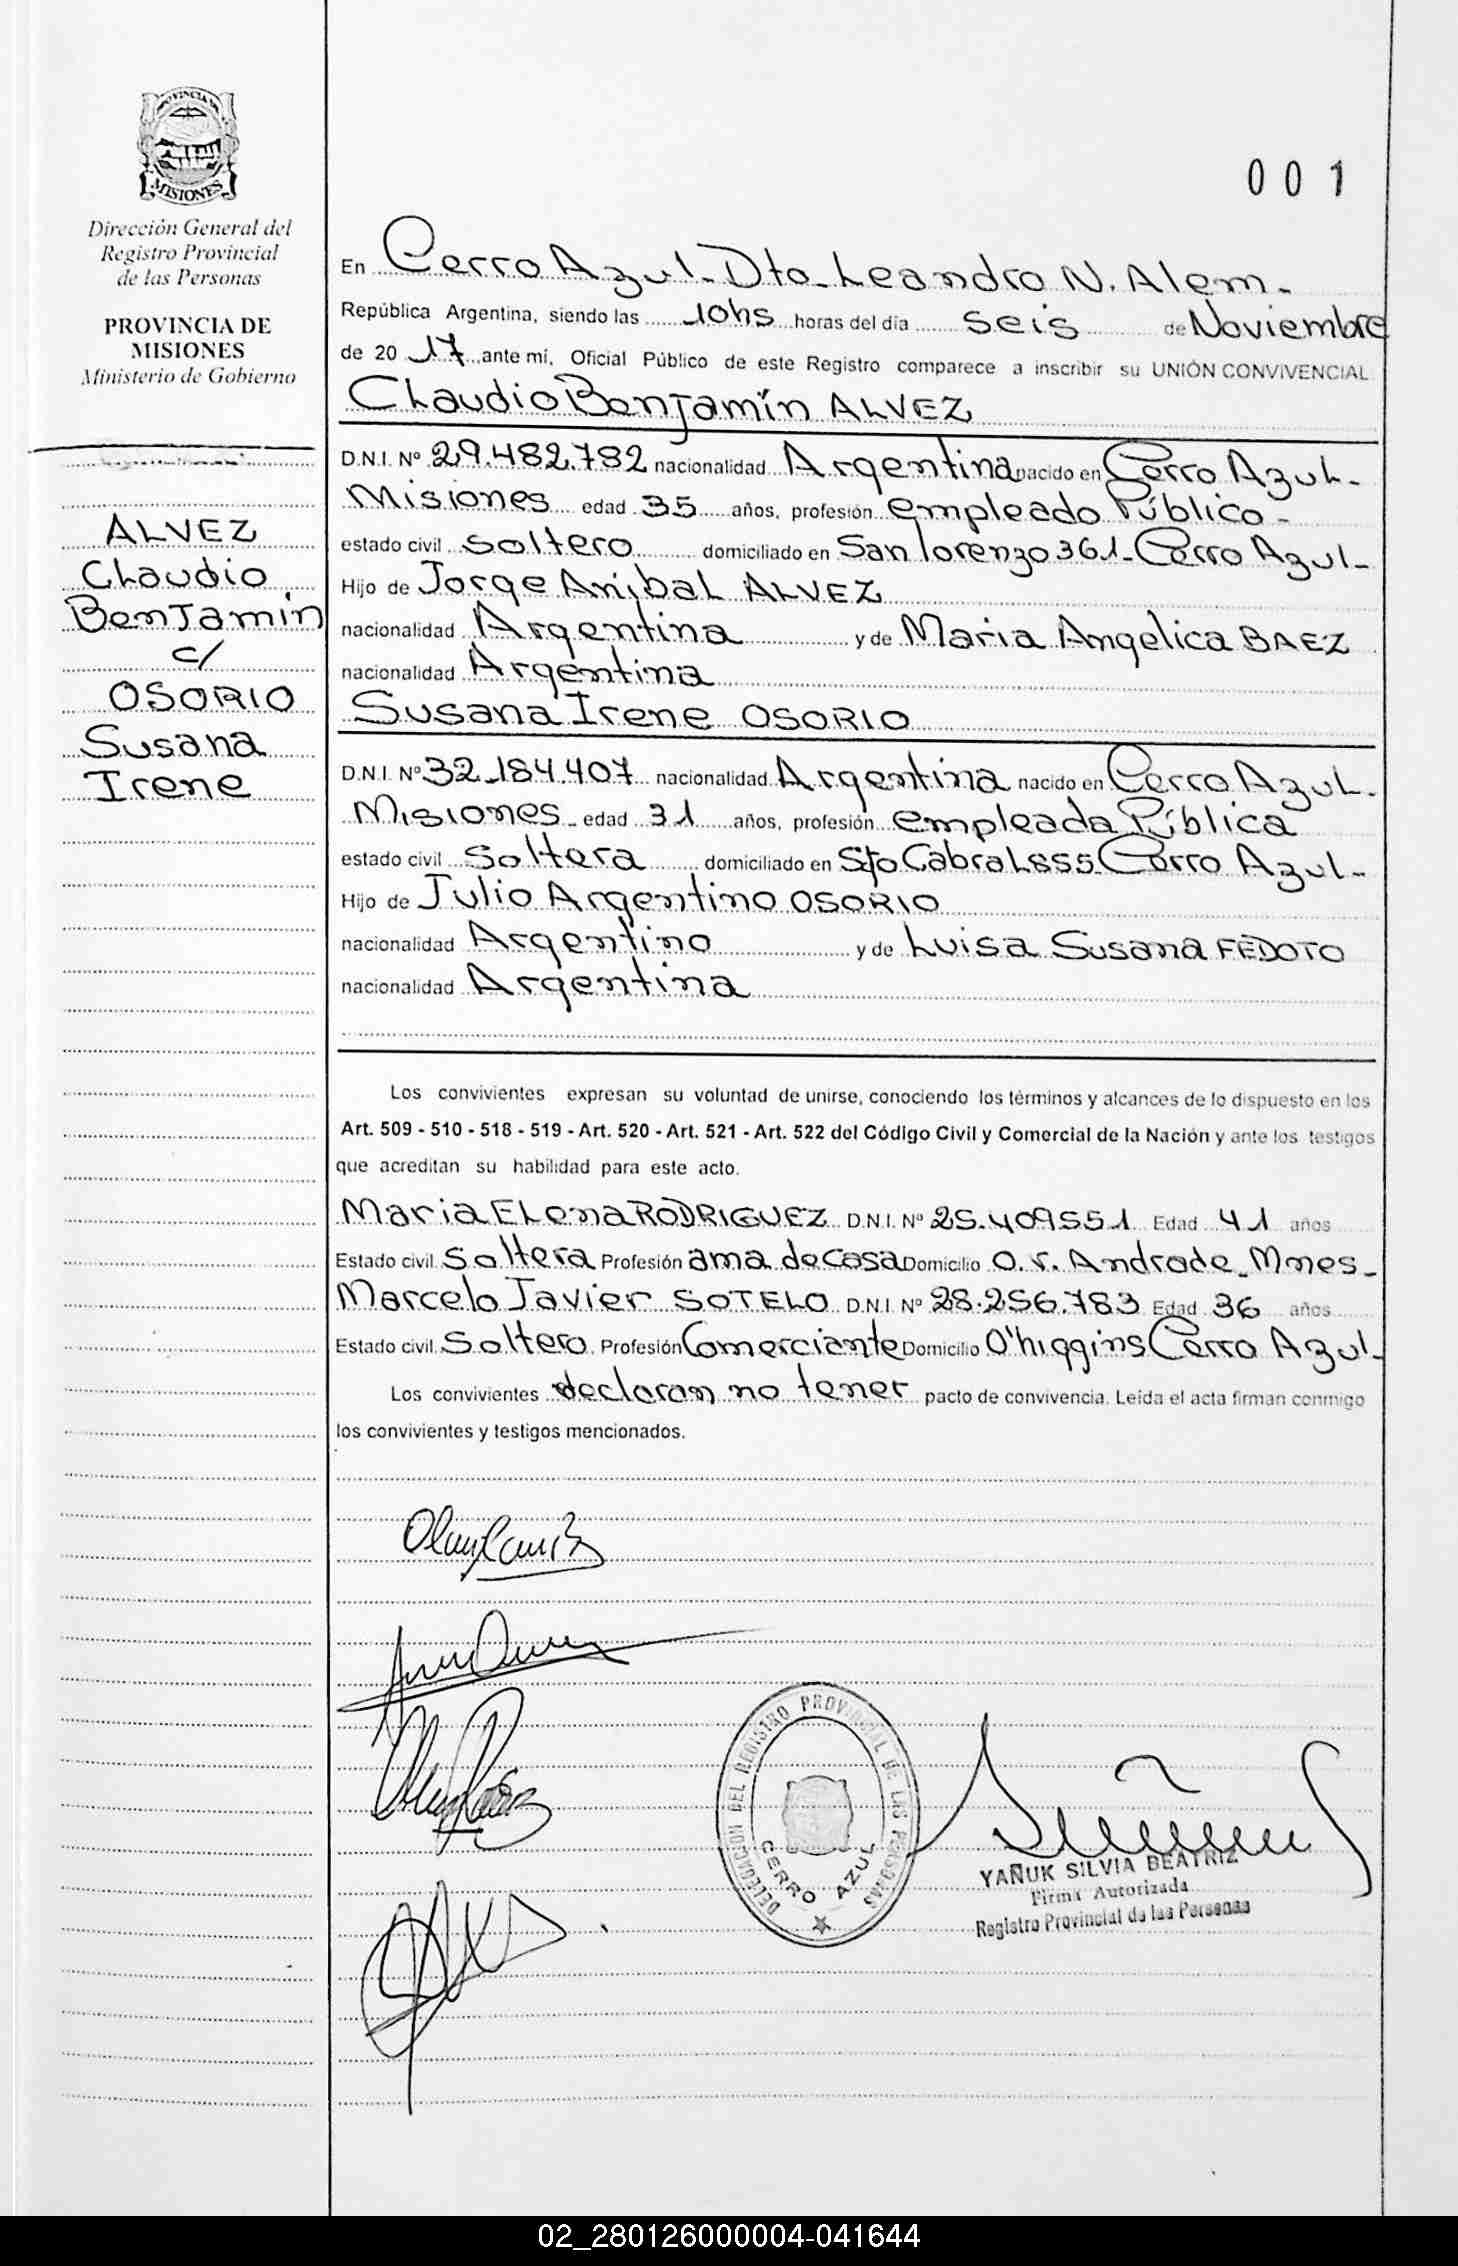 PROVINCIA DE
MISIONES
Dirección General del
Registro Provincial
de las Personas
PROVINCIA DE
MISIONES
Ministerio de Gobierno
ALVEZ
Claudio
Benjamin
c/
OSORIO
Susana
Irene
001
En Cerro Azul - Dto. Leandro N. Alem -
República Argentina, siendo las 10hs horas del día seis de Noviembre
de 20 17 ante mí, Oficial Público de este Registro comparece a inscribir su UNIÓN CONVIVENCIAL
Claudio Benjamín ALVEZ
D.N.I. Nº 29.482.782 nacionalidad Argentina nacido en Cerro Azul -
Misiones edad 35 años, profesión empleado Público -
estado civil soltero domiciliado en San lorenzo 361 - Cerro Azul -
Hijo de Jorge Anibal ALVEZ
nacionalidad Argentina y de Maria Angelica BAEZ
nacionalidad Argentina
Susana Irene OSORIO
D.N.I. Nº 32.184.407 nacionalidad Argentina nacido en Cerro Azul -
Misiones - edad 31 años, profesión empleada Pública
estado civil Soltera domiciliado en Sto Cabral 855 Cerro Azul -
Hijo de Julio Argentino OSORIO
nacionalidad Argentino y de Luisa Susana FEDOTO
nacionalidad Argentina
Los convivientes expresan su voluntad de unirse, conociendo los términos y alcances de lo dispuesto en los
Art. 509 - 510 - 518 - 519 - Art. 520 - Art. 521 - Art. 522 del Código Civil y Comercial de la Nación y ante los testigos
que acreditan su habilidad para este acto.
Maria Elena RODRIGUEZ D.N.I. Nº 25.409551 Edad 41 años
Estado civil Soltera Profesión ama de casa Domicilio O. V. Andrade - Mnes -
Marcelo Javier SOTELO D.N.I. Nº 28.256.783 Edad 36 años
Estado civil Soltero Profesión Comerciante Domicilio O'higgins Cerro Azul -
Los convivientes declaran no tener pacto de convivencia. Leída el acta firman conmigo
los convivientes y testigos mencionados.
DELEGACION DEL REGISTRO PROVINCIAL DE LAS PERSONAS
CERRO AZUL
YAÑUK SILVIA BEATRIZ
Firma Autorizada
Registro Provincial de las Personas
02_280126000004-041644